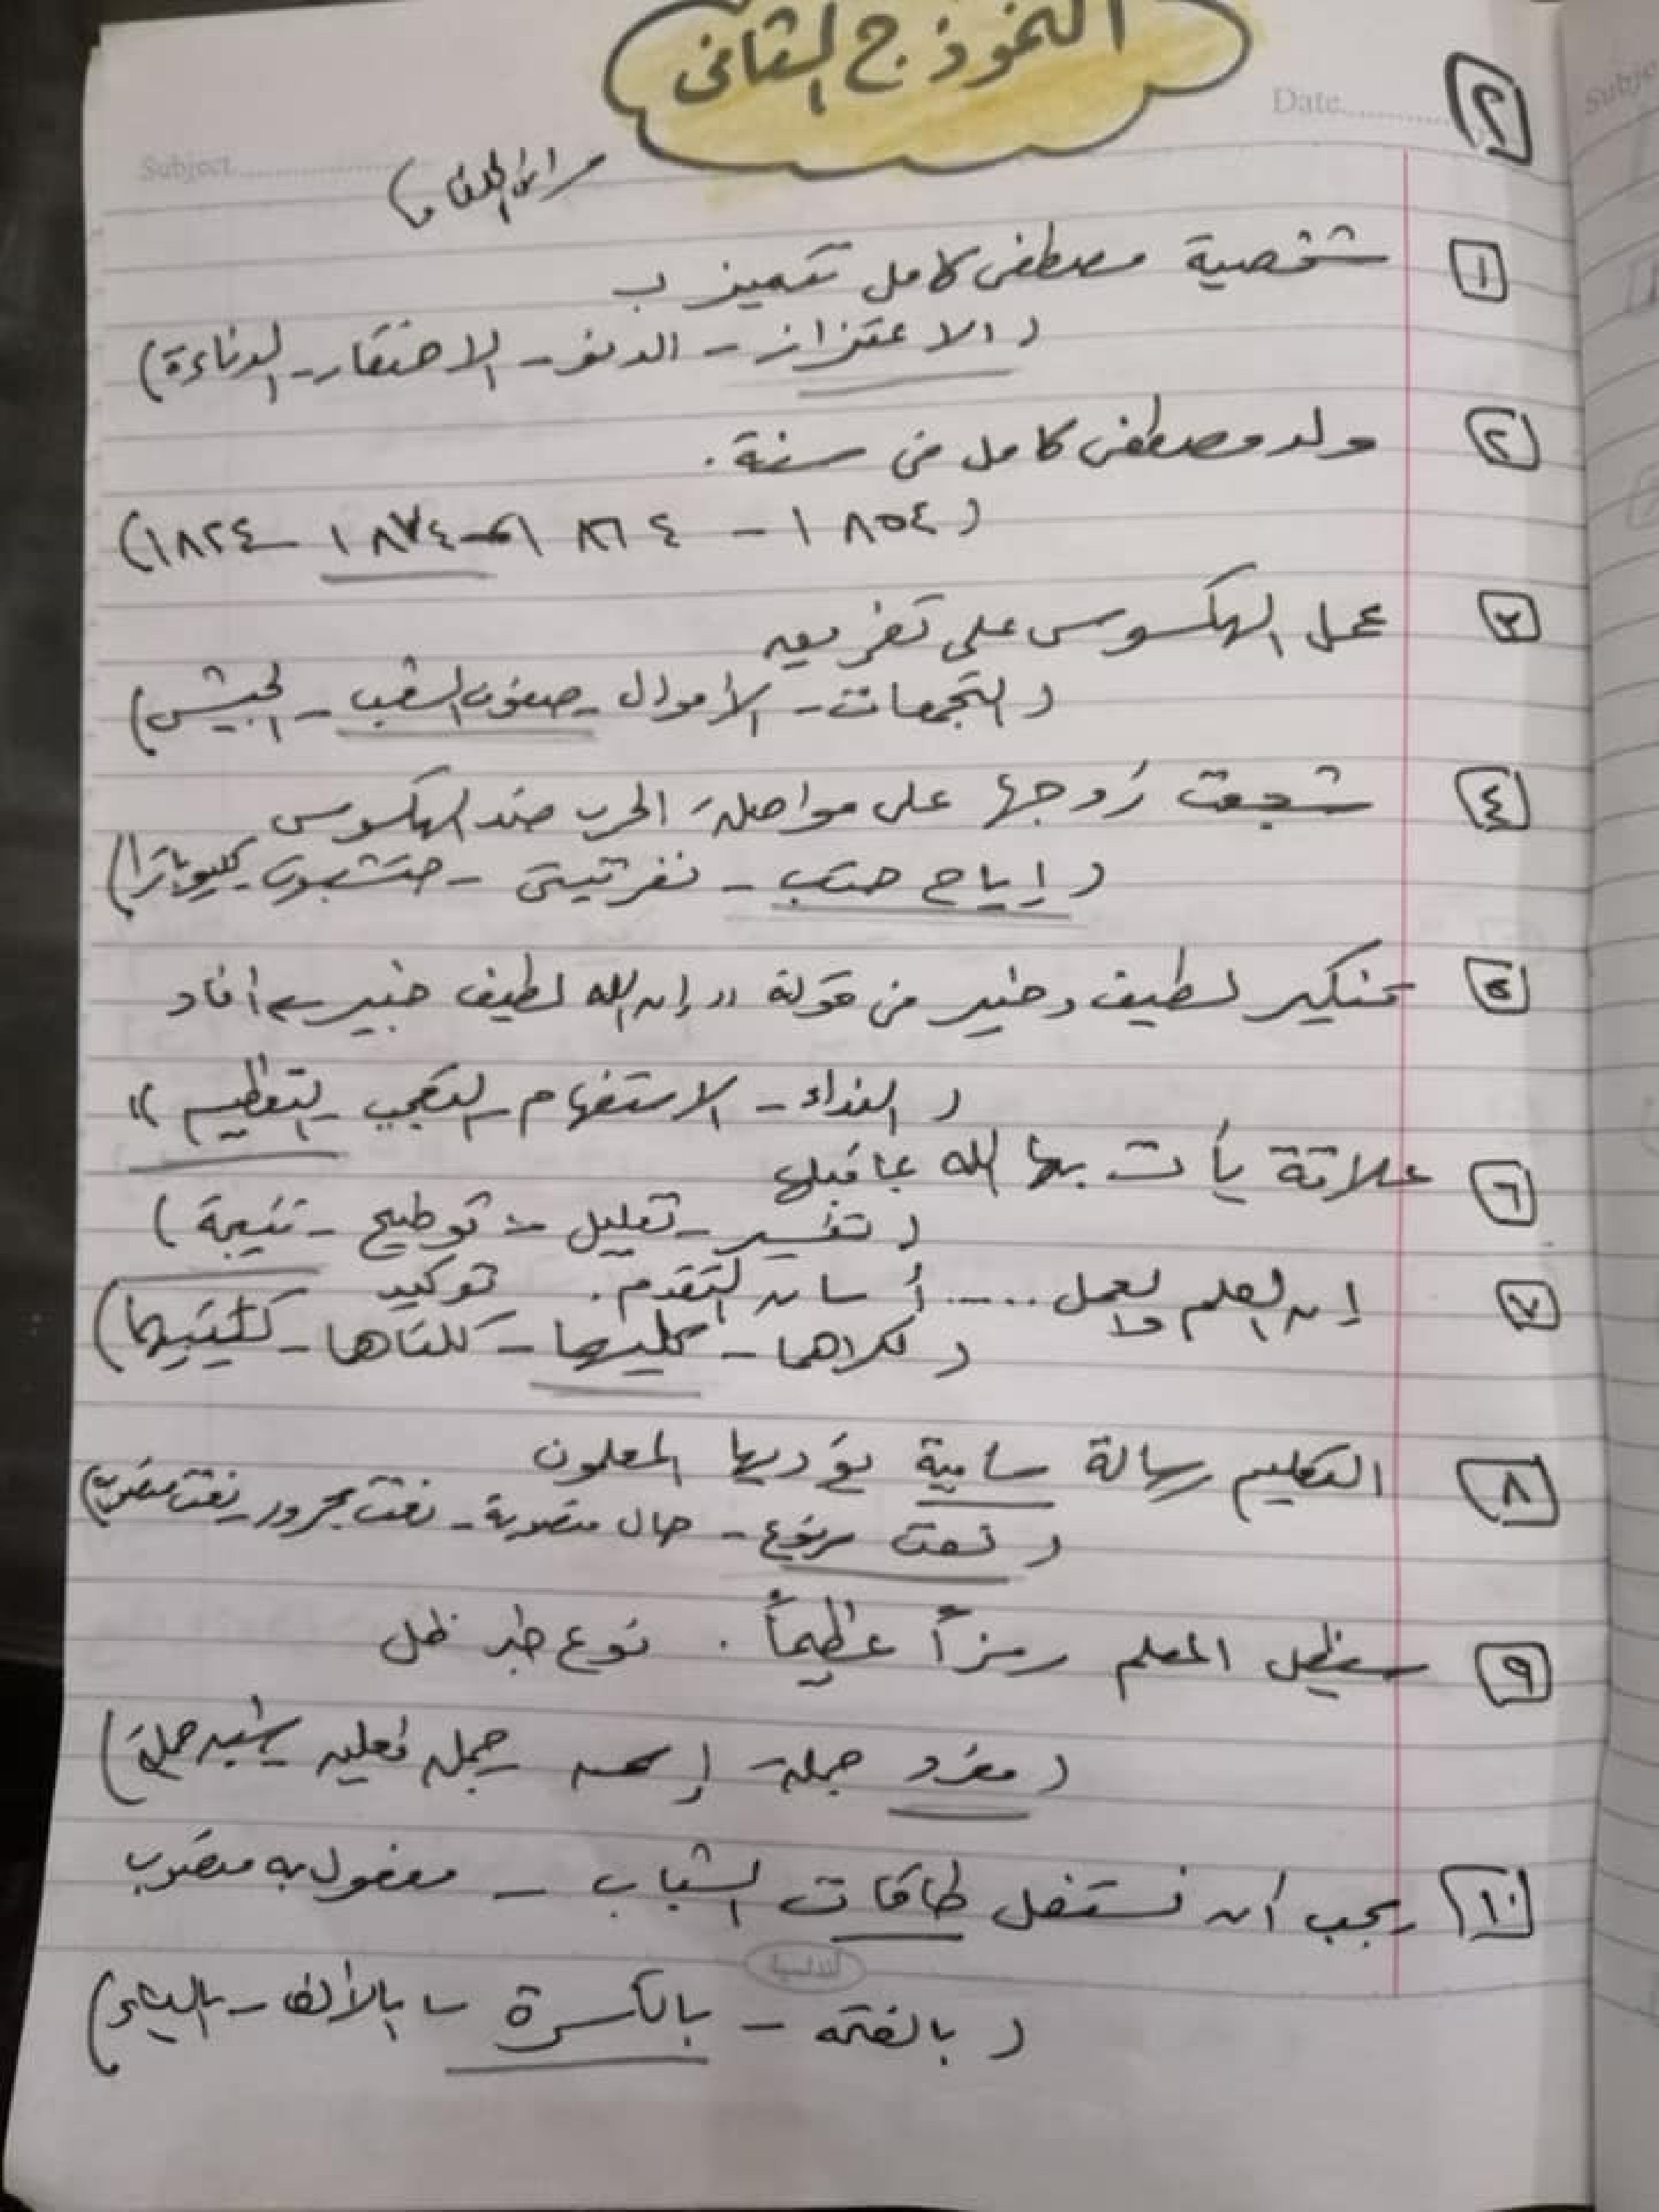 النموذج الثانى
Date
٢
Subject
Subje
١ شخصية مصطفى كامل تتميز ب
( الاعتزاز - الدنو - الاحتقار - الدناءة )
٢ ولد مصطفى كامل فى سنة .
( ١٨٥٤ - ١٨٦٤ - ١٨٧٤ - ١٨٢٤ )
٣ عمل الهكسوس على تفريق
( التجمعات - الأموال - صفوف الشعب - الجيش )
٤ شجعت زوجها على مواصلة الحرب ضد الهكسوس
( إياح حتب - نفرتيتى - حتشبسوت - كليوباترا )
٥ تنكير لطيف وخبير فى قولة " إن الله لطيف خبير " أفاد
( النداء - الاستفهام - التعجب - التعظيم )
٦ علاقة يأت بها الله بما قبلها
( تفسير - تعليل - توطيح - نتيجة )
٧ إن العلم والعمل ..... أساس التقدم . توكيد
( كلاهما - كليهما - كلتاهما - كلتيهما )
٨ التعليم رسالة سامية يؤديها المعلمون
( نعت مرفوع - حال منصوبة - نعت مجرور - نعت منصوب )
٩ سيظل المعلم رمزاً عظيماً . نوع خبر ظل
( مفرد جملة إسمية - جملة فعليه - شبه جملة )
١٠ يجب أن نستغل طاقات الشباب - مفعول به منصوب
( بالفتحه - بالكسرة - بالألف - بالياء )